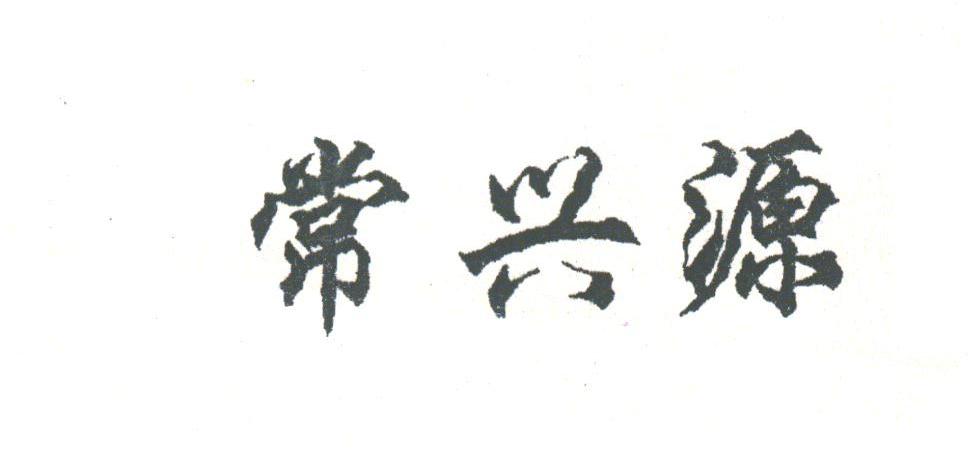 常兴源